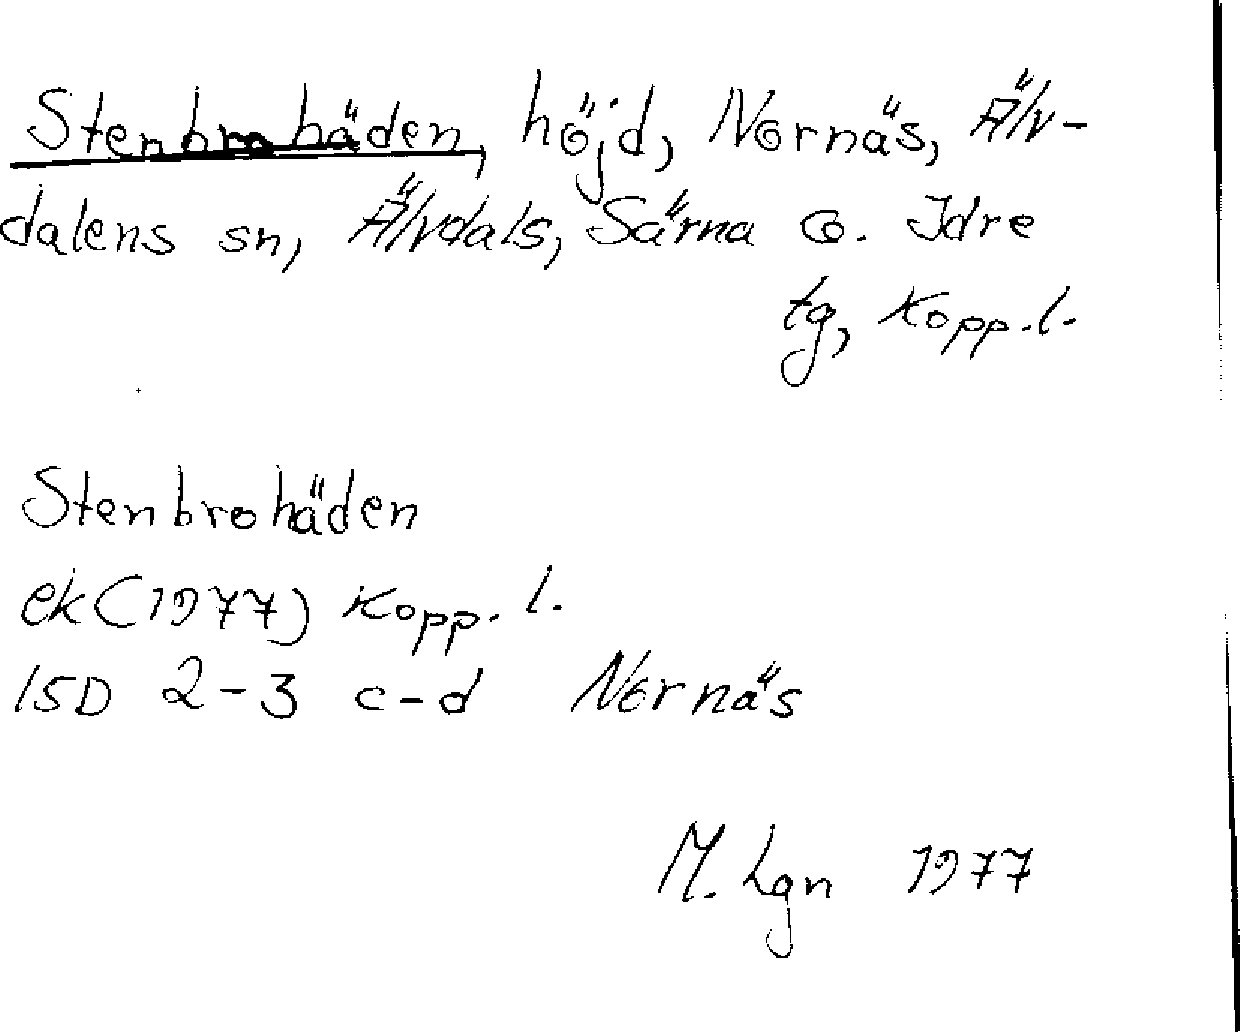 Stenbrohäden, höjd, Nornäs, Älv-
dalens sn, Älvdals, Särna o. Idre
tg, Kopp.l.
Stenbrohäden
ek(1977) Kopp. l.
15D 2-3 c-d Nornäs
M. Lgn 1977